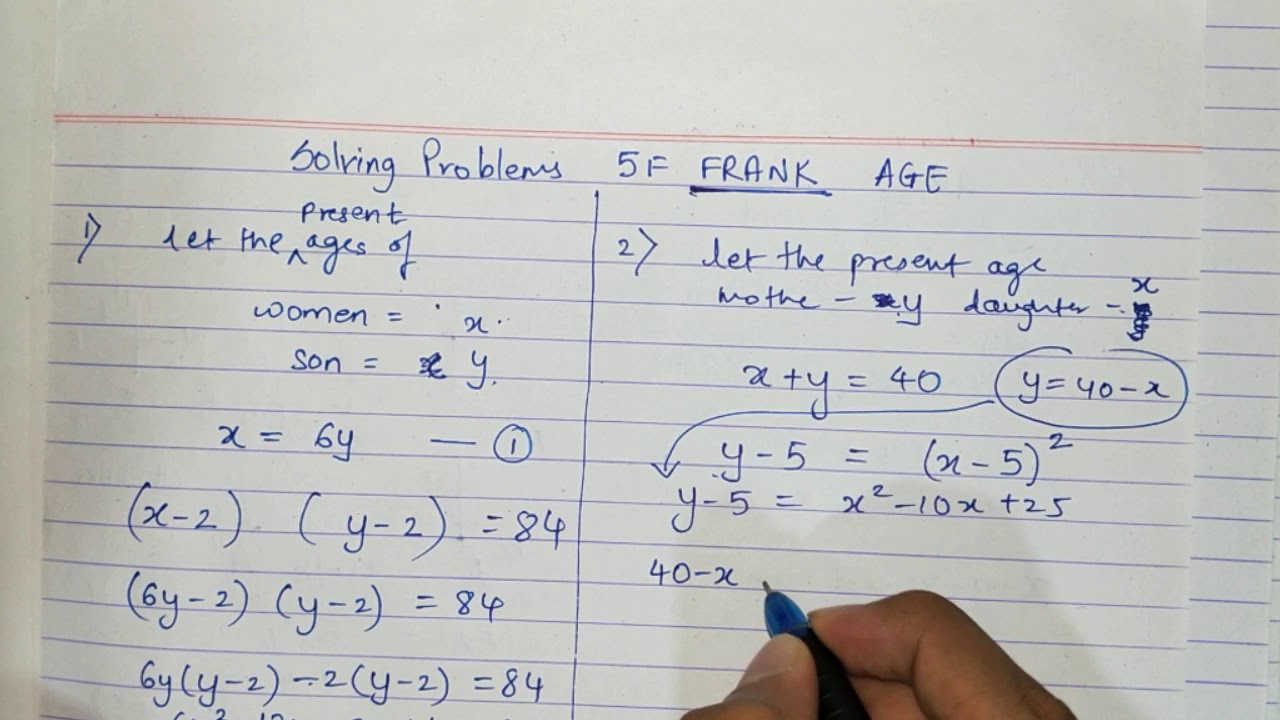 Solving Problems 5F FRANK AGE
1) present
let the ^ ages of
women = x.
son = y.
x = 6y — ①
(x-2) (y-2) = 84
(6y-2) (y-2) = 84
6y(y-2) -2(y-2) = 84
2) let the present age
mothe - y daughter - x
x+y = 40 y=40-x
y-5 = (x-5)²
y-5 = x²-10x+25
40-x